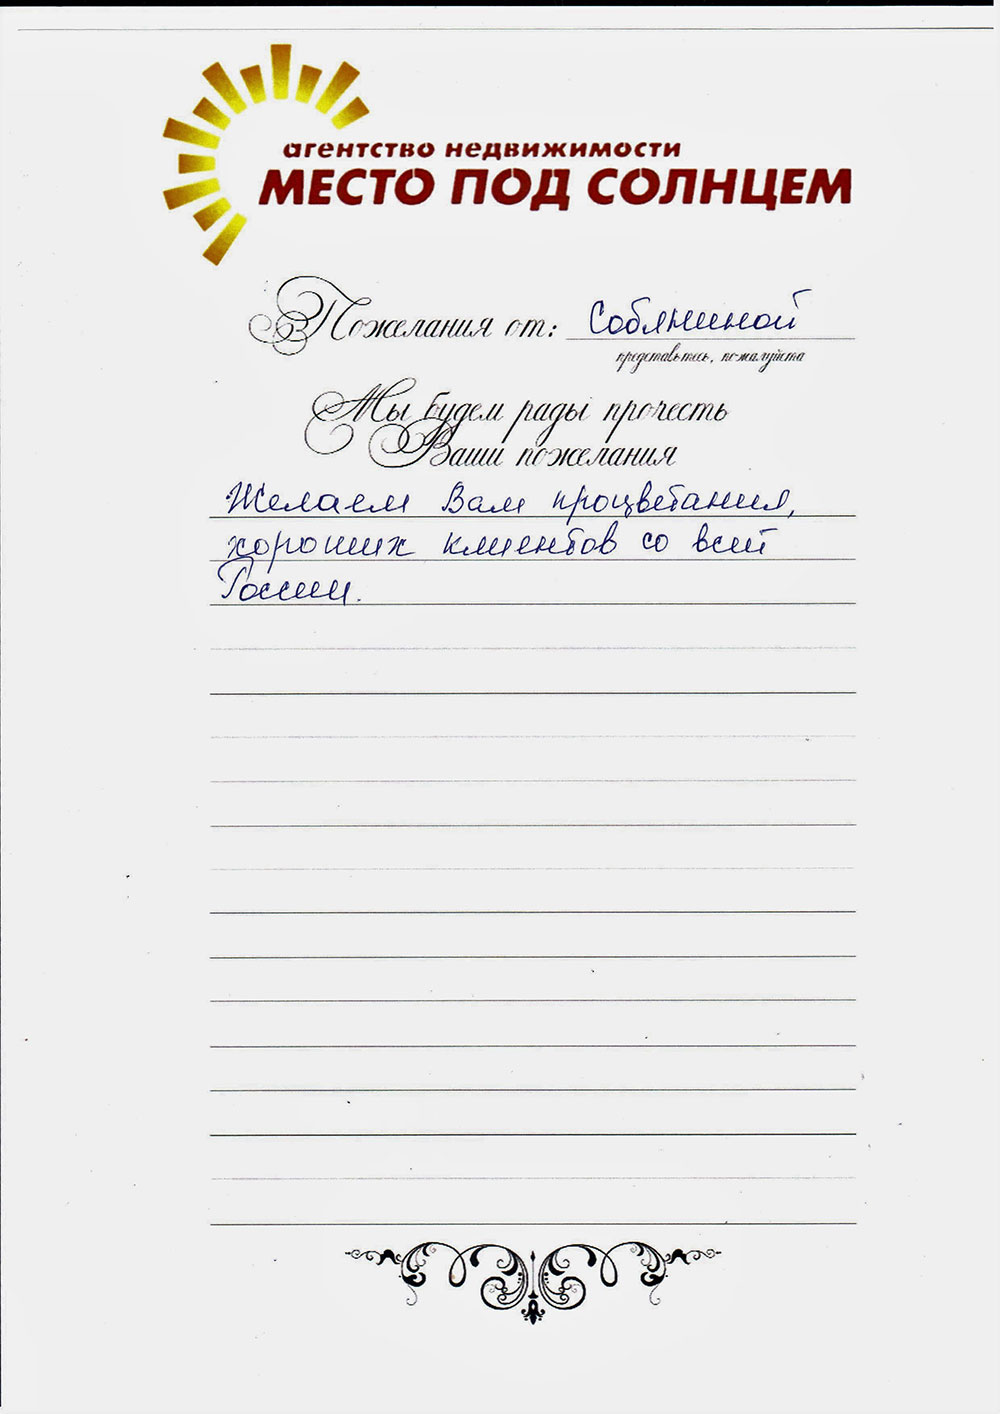 агентство недвижимости
МЕСТО ПОД СОЛНЦЕМ
Пожелания от: Собяниной
представьтесь, пожалуйста
Мы будем рады прочесть
Ваши пожелания
Желаем Вам процветания,
хороших клиентов со всей
России.